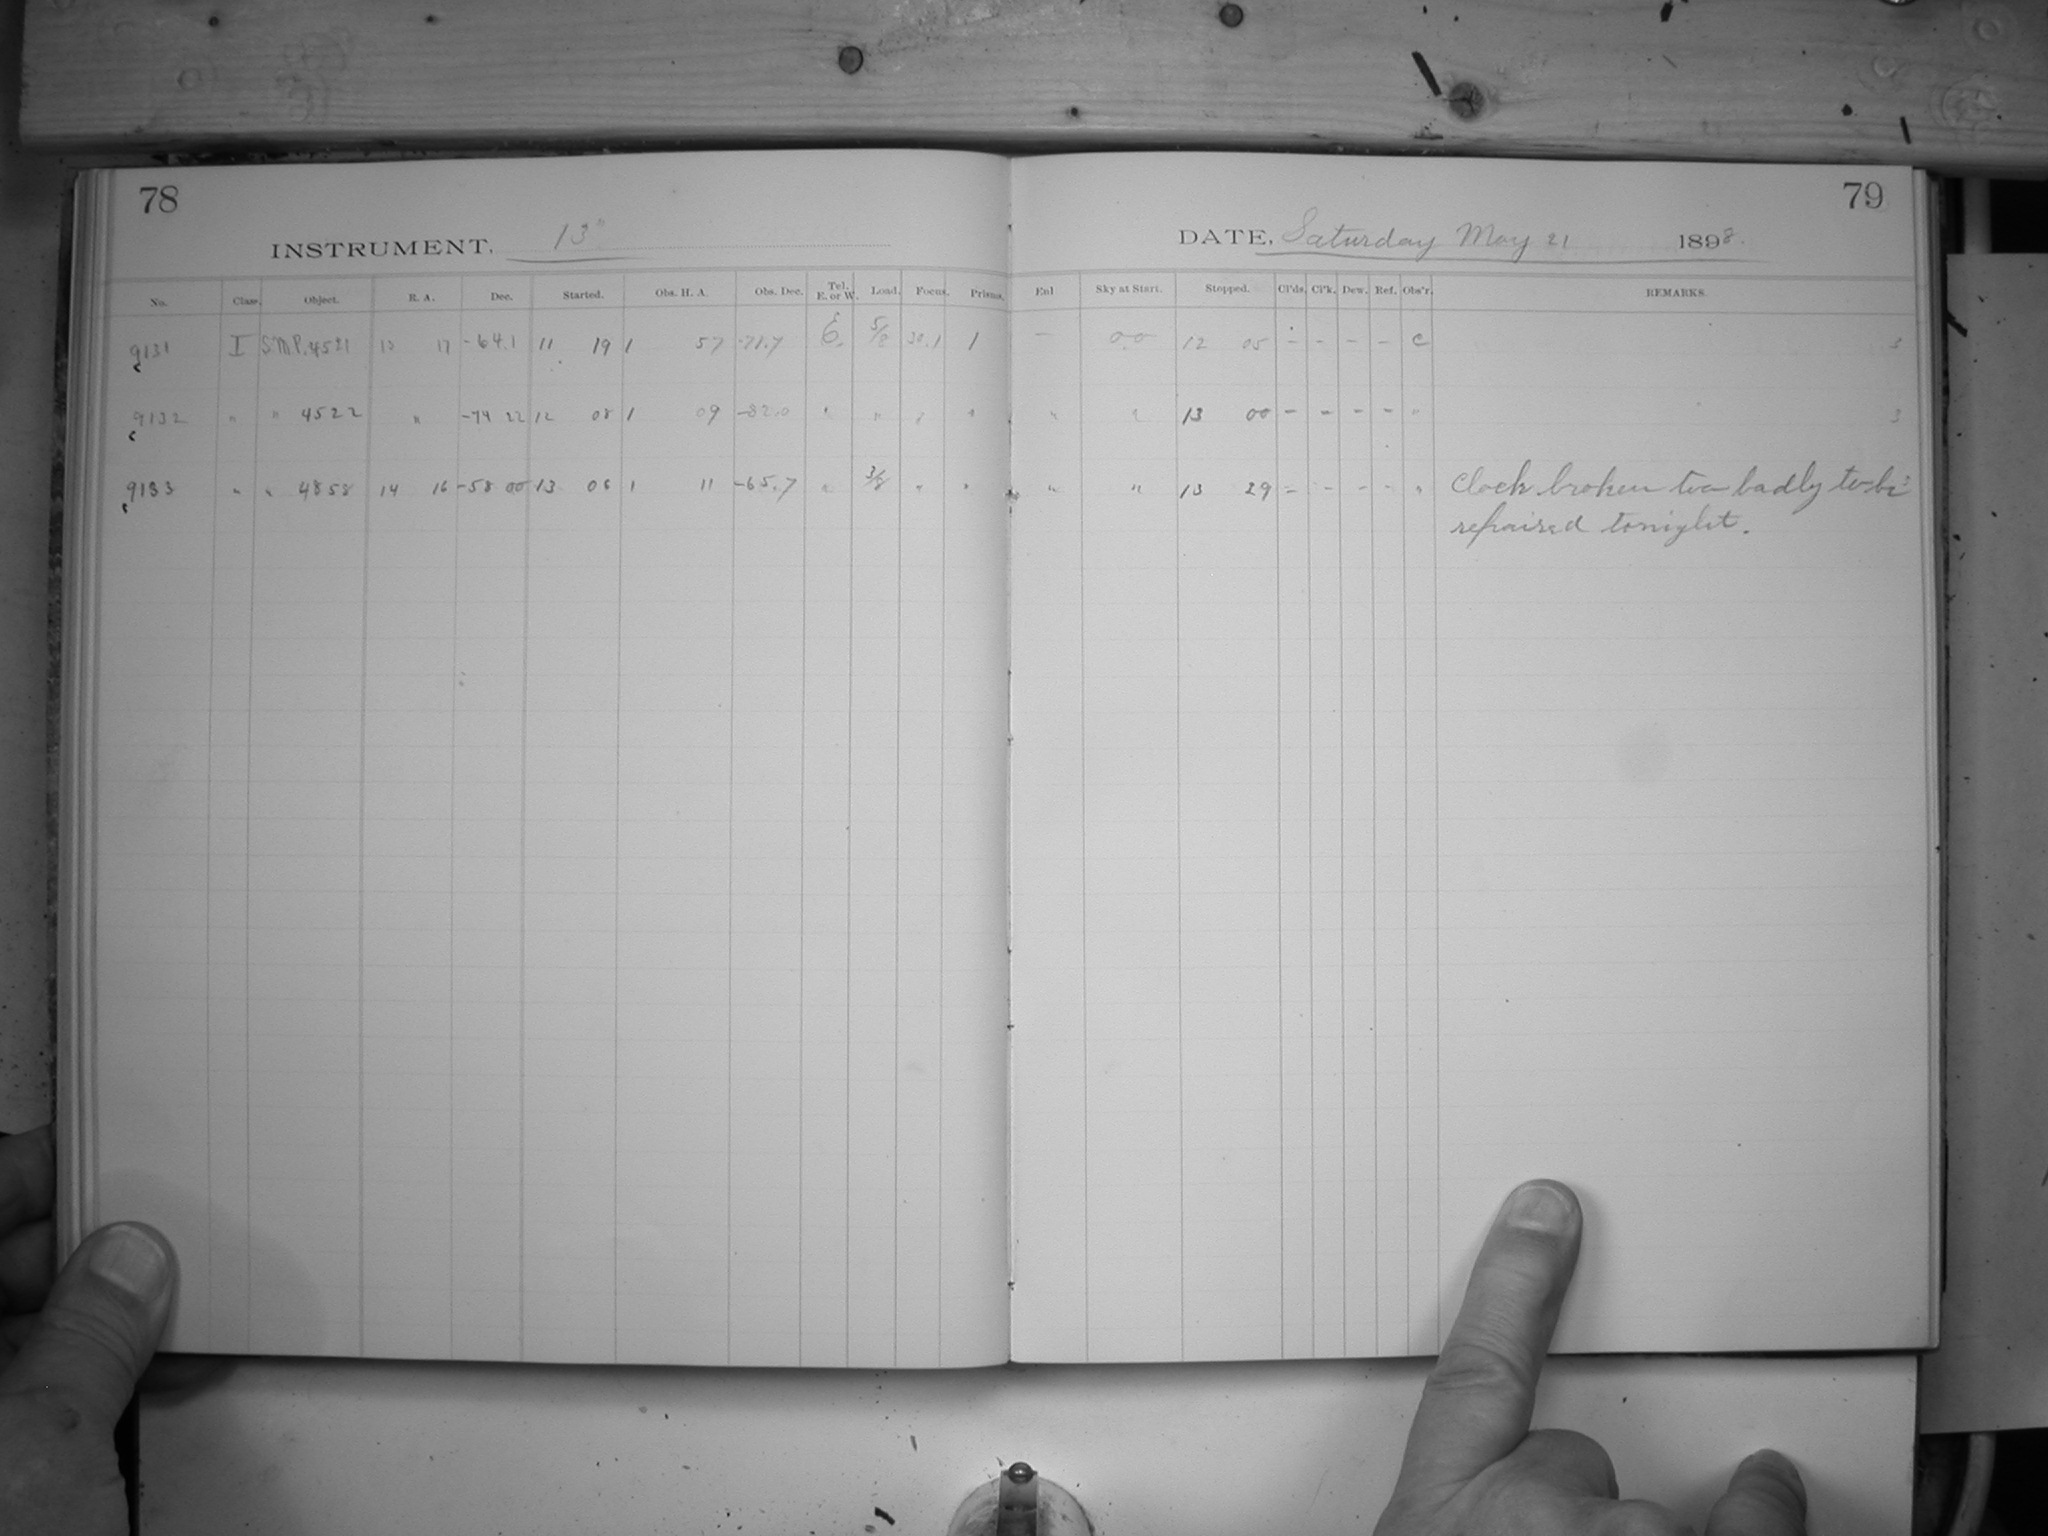 78
79
INSTRUMENT. 13"
DATE, Saturday May 21 1898.
No. Class. Object. R. A. Dec. Started. Obs. H. A. Obs. Dec. Tel. E. or W. Load. Focus. Prisms. Enl Sky at Start. Stopped. Cl'ds. Cl'k. Dew. Ref. Obs'r. REMARKS.
9131 I S.M.P. 4521 13 17 -64.1 11 19 1 57 -71.7 E. 5/8 30.1 1 - 0.0 12 05 - - - - C 3
9132 " " 4522 " -74 22 12 08 1 09 -82.0 " " " " " " 13 00 - - - - " 3
9133 " " 4858 14 16 -58 00 13 06 1 11 -65.7 " 3/8 " " " " 13 29 = - - - " Clock broken too badly to be 3
repaired tonight.